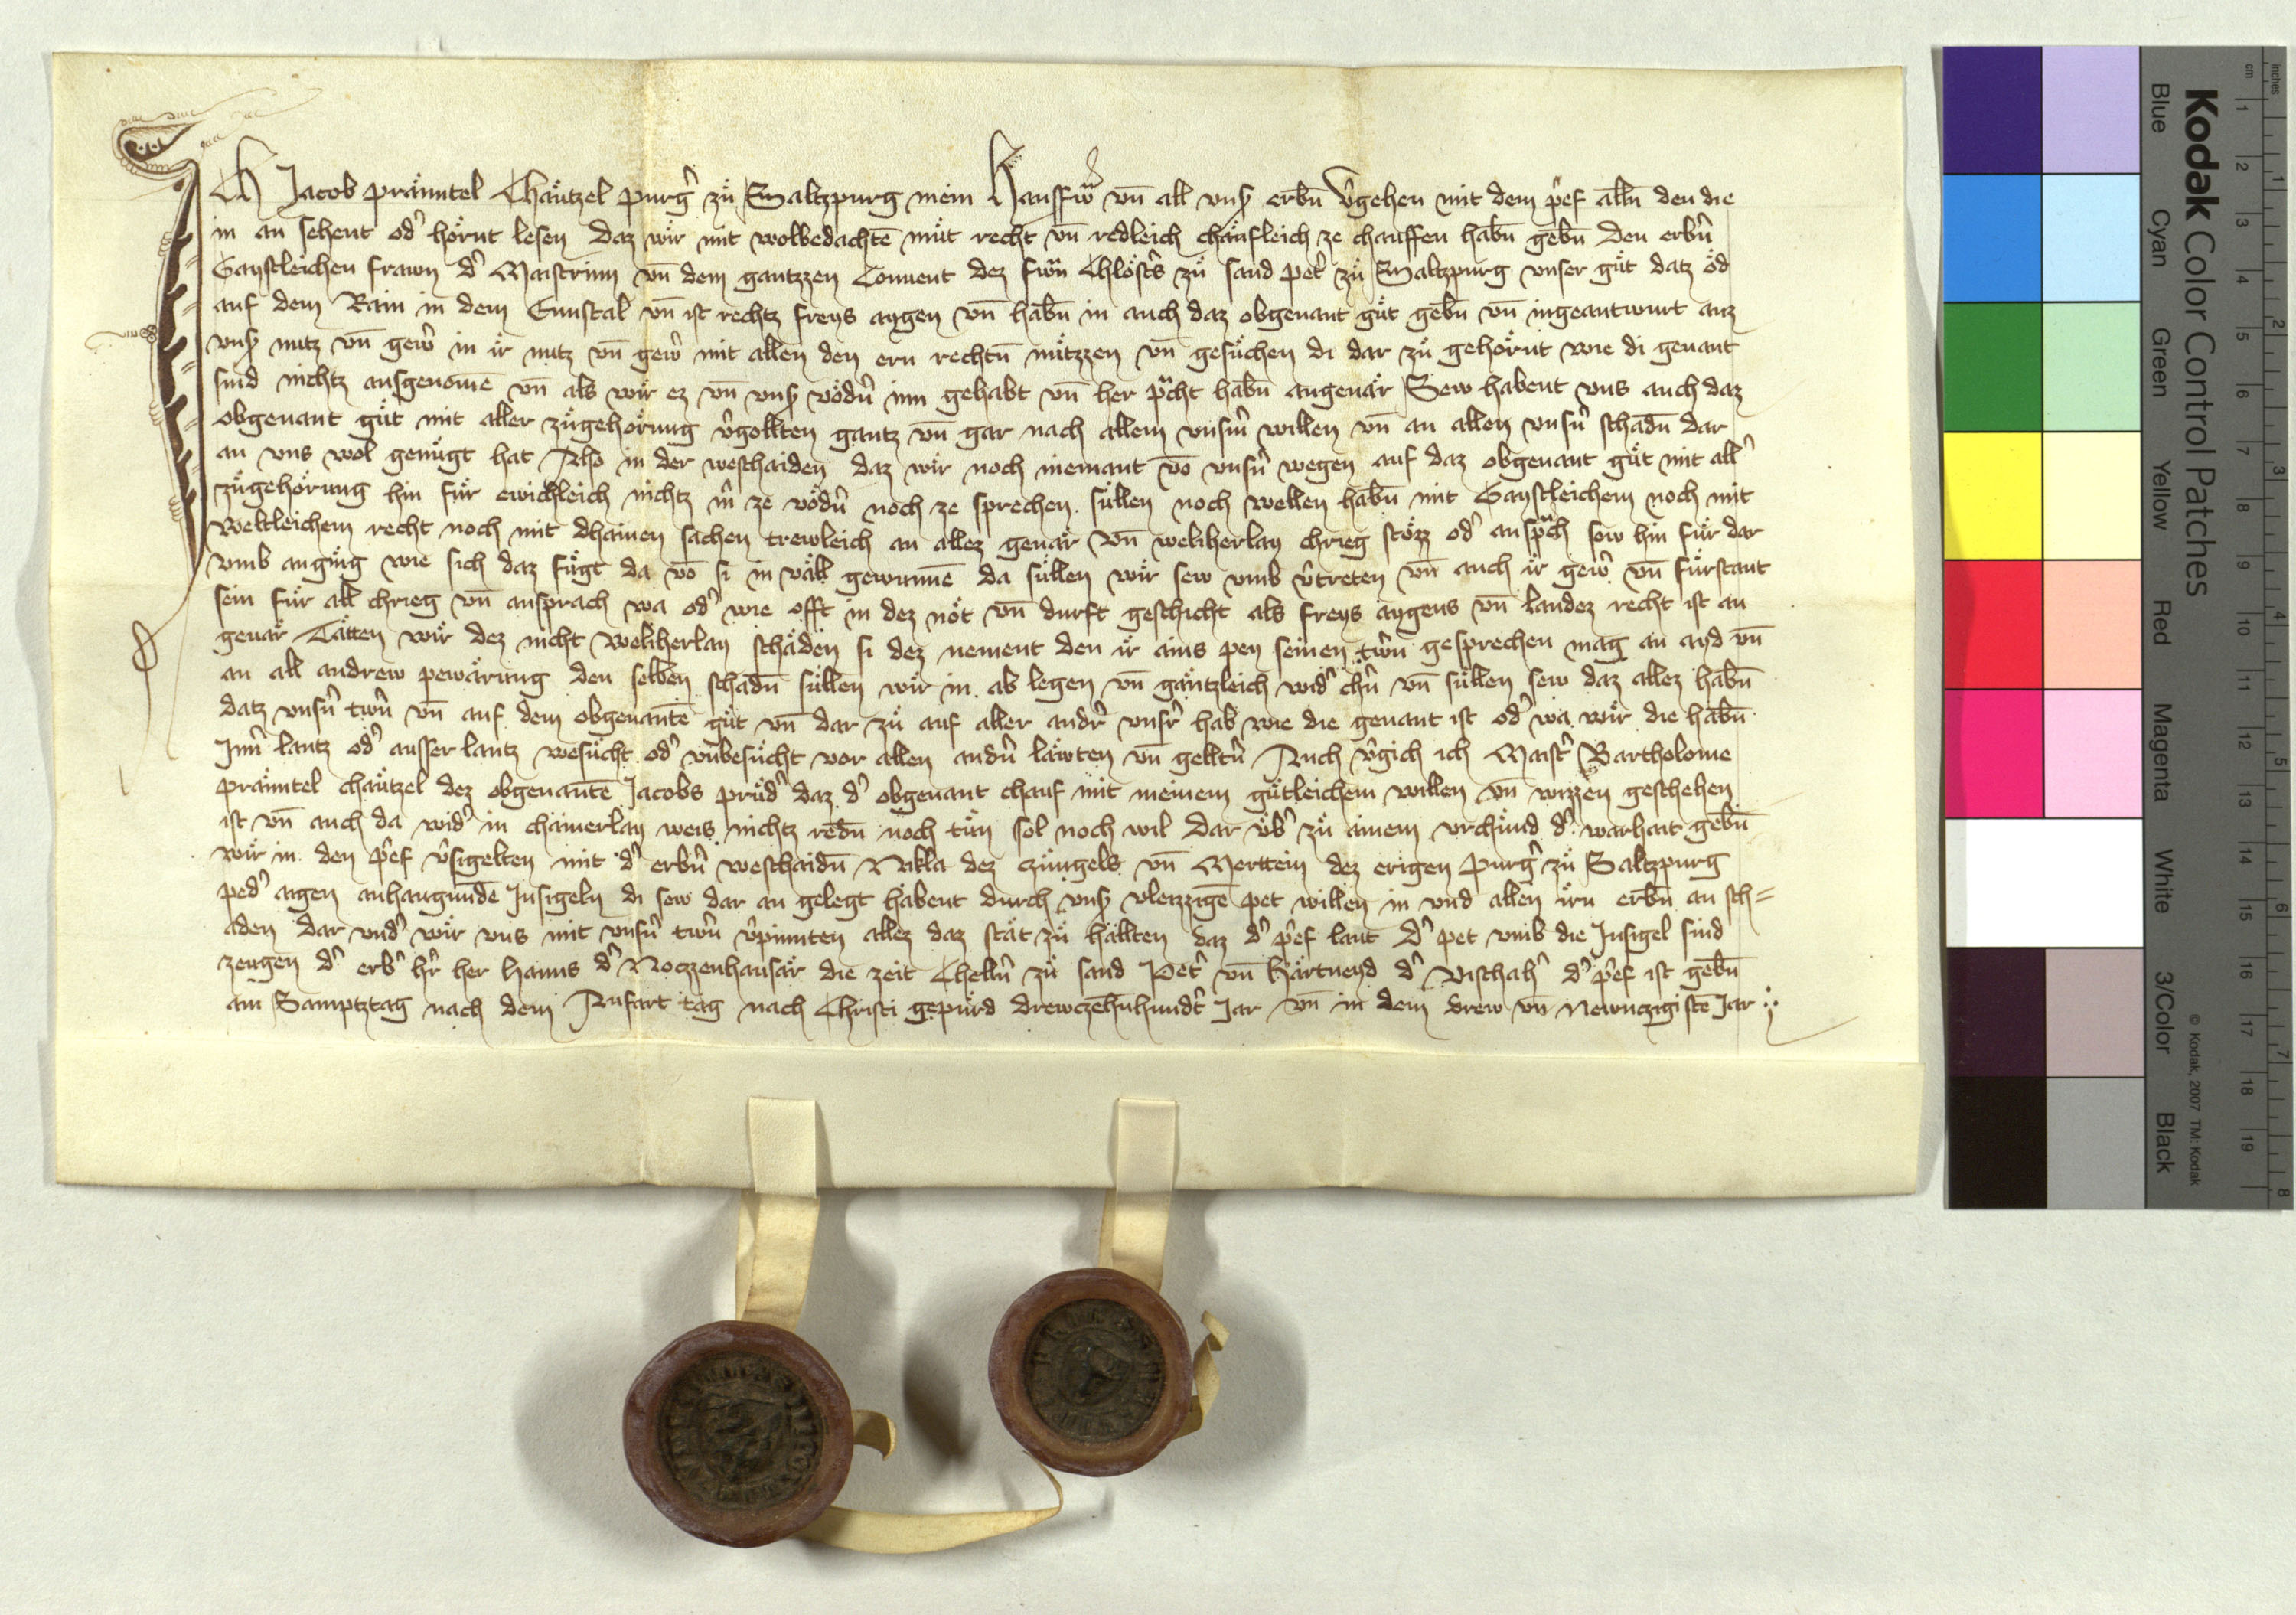 Ich Jacob pränntel Chäutzel purg̉ zů Saltzpurg mein Hausfrw̉ vn̄ all vnſ̉ erbn̄ v̉gehen mit dem p̉ef alln̄ den die
in an sehent od̉ hörnt lesen daz wir mit wolbedachtē můt recht vn̄ redleich chäufleich ze chauffen habn̄ gebn̄ den erbn̉
Gaystleichen frawn d̉ Maistrinn vn̄ dem gantzzen Conuent dez frwn̄ Chlöst̉s zů sand pet̉ zů Saltzpurg vnser gůt datz öd
auf dem Rain in dem Ennstal vn̄ ist rechtz freys aygen vn̄ habn̄ in auch daz obgenant gůt gebn̄ vn̄ ingeantwurt auz
vnſ̉ nutz vn̄ gew̉ in ir nutz vn̄ gew̉ mit allen den ern rechtn̄ nützzen vn̄ gesůchen di dar zů gehörnt wie di genant
sind nichtz ausgenomē vn̄ als wir ez vn̄ vnſ̉ vödn̉ inn gehabt vn̄ her pracht habn̄ angenär Sew habent vns auch daz
obgenant gůt mit aller zůgehörung v̉gollten gantz vn̄ gar nach allem vnsm̉ willen vn̄ an allen vnsn̉ schadn̄ dar
an vns wol genügt hat Also in der weschaiden daz wir noch niemant vō vnsn̉ wegen auf daz obgenant gůt mit all̉
zůgehörung hin für ewichleich nichtz m̉ ze vödn̉ noch ze sprechen süllen noch wellen habn̄ mit Gaystleichem noch mit
Weltleichem recht noch mit dhainen sachen trewleich an allez geuär Vn̄ weliherlay chrieg stözz od̉ ansprach sew hin für dar
vmb angüng wie sich daz fügt da vō si in väll gewunnē da süllen wir sew vmb v̉treten vn̄ auch ir gew̉ vn̄ fürstant
sein für all chrieg vn̄ ansprach wa od̉ wie offt in dez nöt vn̄ durft geschicht als freys aygens vn̄ landez recht ist an
geuär Tätten wir dez nicht Weliherlay schäden si dez nement den ir ains pey seinen trwn̉ gesprechen mag an ayd vn̄
an all andrew pewärung den selben schadn̄ süllen wir in ab legen vn̄ gäntzleich wid̉ chn̉ vn̄ süllen sew daz allez habn̄
datz vnsn̉ trwn̉ vn̄ auf dem obgenantē gůt vn̄ dar zů auf aller andr̉ vnsr̉ hab wie die genant ist od̉ wa wir die habn̄
Inn̉ lantz od̉ ausser lantz wesůcht od̉ vnbesůcht vor allen andn̉ läwten vn̄ gelltn̉ Auch v̉gich ich Maist̉ Bartholome
pränntel chäutzel dez obgenantē Jacobs průd̉ daz d̉ obgenant chauf mit meinem gůtleichem willen vn̄ wizzen geschehen
ist vn̄ auch da wid̉ in chainerlay weis nichtz redn̄ noch tün sol noch wil Dar üb̉ zů ainem vrchünd d̉ warhait gebn̄
wir in den p̉ef v̉sigelten mit d̉ erbn̉ weschaidn̄ Nikla dez züngels vn̄ Merttein dez erigen purg̉ zů Saltzpurg
ped̉ aigen anhangundē Insigeln di sew dar an gelegt habent durch vnſ̉ vleizzigē pet willen in vnd allen irn erbn̄ an sch=
aden dar vnd̉ wir vns mit vnsn̉ trwn̉ v̉pinnten allez daz stät zů hallten daz d̉ p̉ef laut D̉ pet vmb die Insigel sind
zeugen d̉ erb̉ hr̉ her Hanns d̉ Noczenhausär die zeit Chelln̉ zů sand Pet̉ vn̄ Härtneyd d̉ Vischah̉ d̉ p̉ef ist gebn̄
am Samptztag nach dem Aufart tag nach Christi gepůrd drewczehnhundt̉ Jar vn̄ in dem drew vn̄ Newnczigistē Jar
Kodak Color Control Patches
Blue Cyan Green Yellow Red Magenta White 3/Color Black
© Kodak, 2007 TM: Kodak
cm 1 2 3 4 5 6 7 8 9 10 11 12 13 14 15 16 17 18 19
inches 1 2 3 4 5 6 7 8